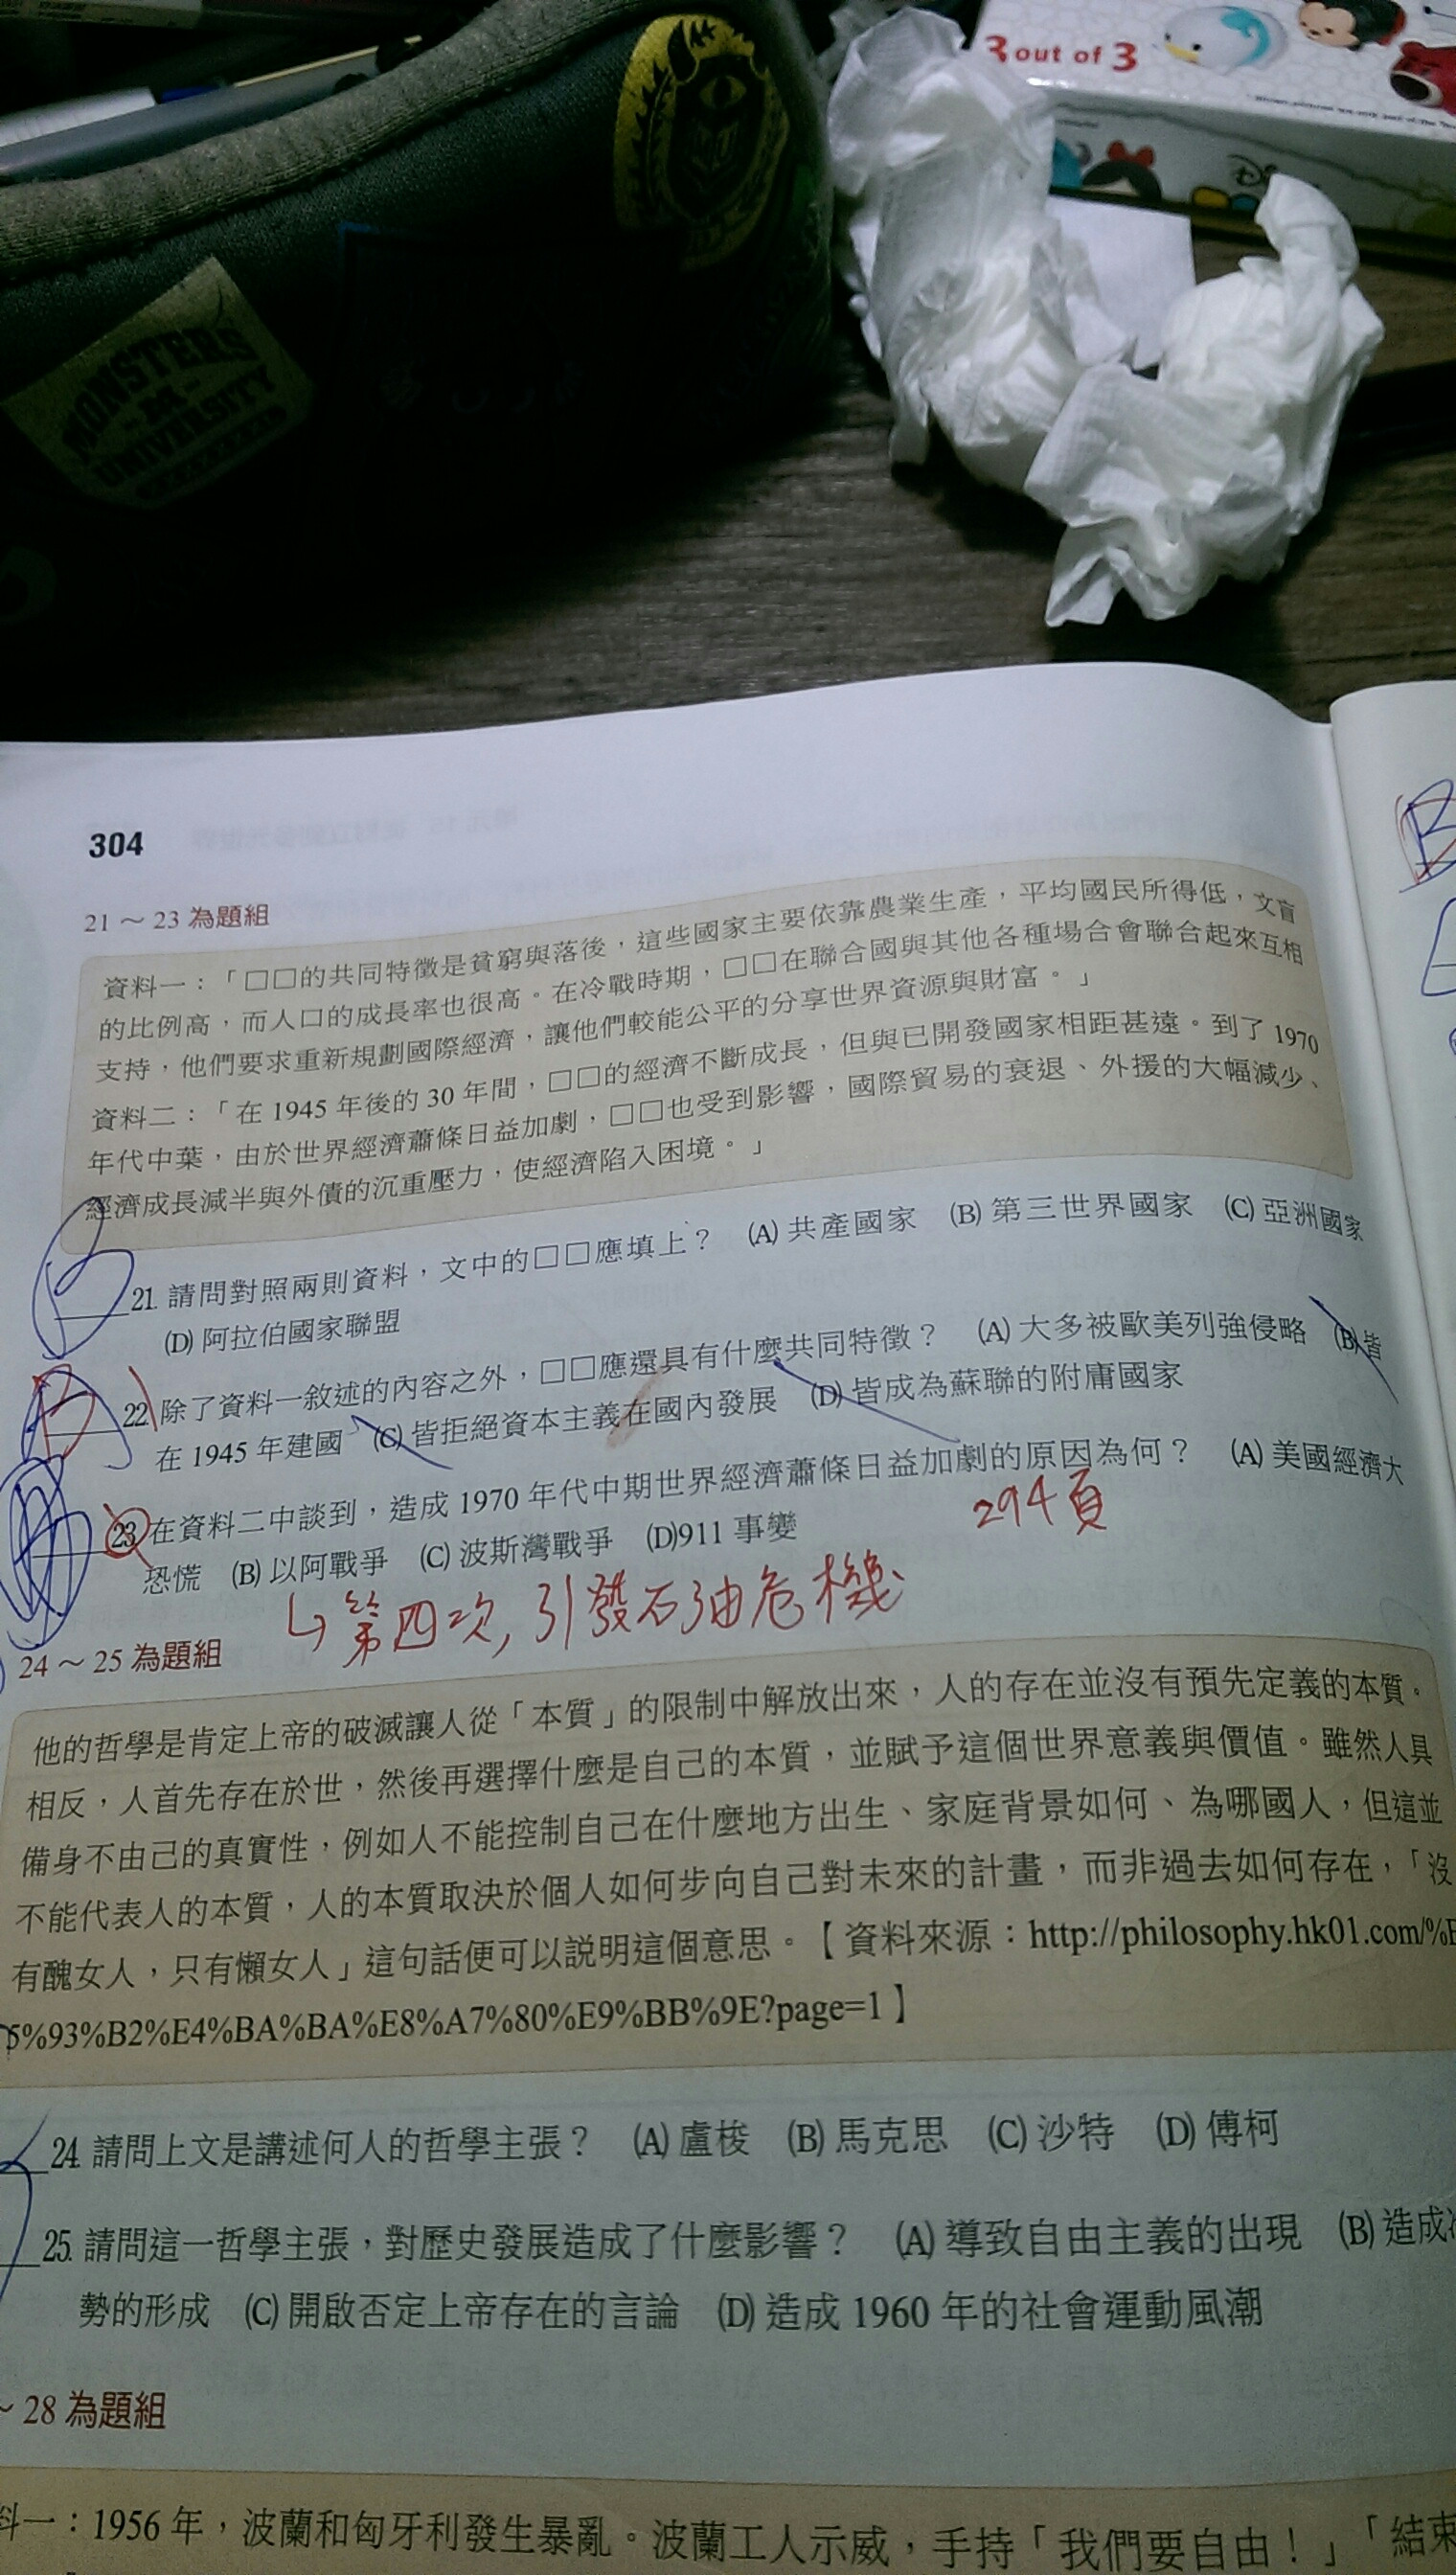 3 out of 3
MONSTERS
UNIVERSITY
304
21～23 為題組
資料一：「□□的共同特徵是貧窮與落後，這些國家主要依靠農業生產，平均國民所得低，文盲
的比例高，而人口的成長率也很高。在冷戰時期，□□在聯合國與其他各種場合會聯合起來互相
支持，他們要求重新規劃國際經濟，讓他們較能公平的分享世界資源與財富。」
資料二：「在 1945 年後的 30 年間，□□的經濟不斷成長，但與已開發國家相距甚遠。到了 1970
年代中葉，由於世界經濟蕭條日益加劇，□□也受到影響，國際貿易的衰退、外援的大幅減少、
經濟成長減半與外債的沉重壓力，使經濟陷入困境。」
21. 請問對照兩則資料，文中的□□應填上？ (A) 共產國家 (B) 第三世界國家 (C) 亞洲國家
(D) 阿拉伯國家聯盟
22. 除了資料一敘述的內容之外，□□應還具有什麼共同特徵？ (A) 大多被歐美列強侵略 (B) 皆
在 1945 年建國 (C) 皆拒絕資本主義在國內發展 (D) 皆成為蘇聯的附庸國家
23. 在資料二中談到，造成 1970 年代中期世界經濟蕭條日益加劇的原因為何？ (A) 美國經濟大
294頁
恐慌 (B) 以阿戰爭 (C) 波斯灣戰爭 (D)911 事變
↳第四次，引發石油危機
24～25 為題組
他的哲學是肯定上帝的破滅讓人從「本質」的限制中解放出來，人的存在並沒有預先定義的本質。
相反，人首先存在於世，然後再選擇什麼是自己的本質，並賦予這個世界意義與價值。雖然人具
備身不由己的真實性，例如人不能控制自己在什麼地方出生、家庭背景如何、為哪國人，但這並
不能代表人的本質，人的本質取決於個人如何步向自己對未來的計畫，而非過去如何存在，「沒
有醜女人，只有懶女人」這句話便可以說明這個意思。【資料來源：http://philosophy.hk01.com/%E
5%93%B2%E4%BA%BA%E8%A7%80%E9%BB%9E?page=1】
24. 請問上文是講述何人的哲學主張？ (A) 盧梭 (B) 馬克思 (C) 沙特 (D) 傅柯
25. 請問這一哲學主張，對歷史發展造成了什麼影響？ (A) 導致自由主義的出現 (B) 造成
勢的形成 (C) 開啟否定上帝存在的言論 (D) 造成 1960 年的社會運動風潮
～28 為題組
料一：1956 年，波蘭和匈牙利發生暴亂。波蘭工人示威，手持「我們要自由！」「結束